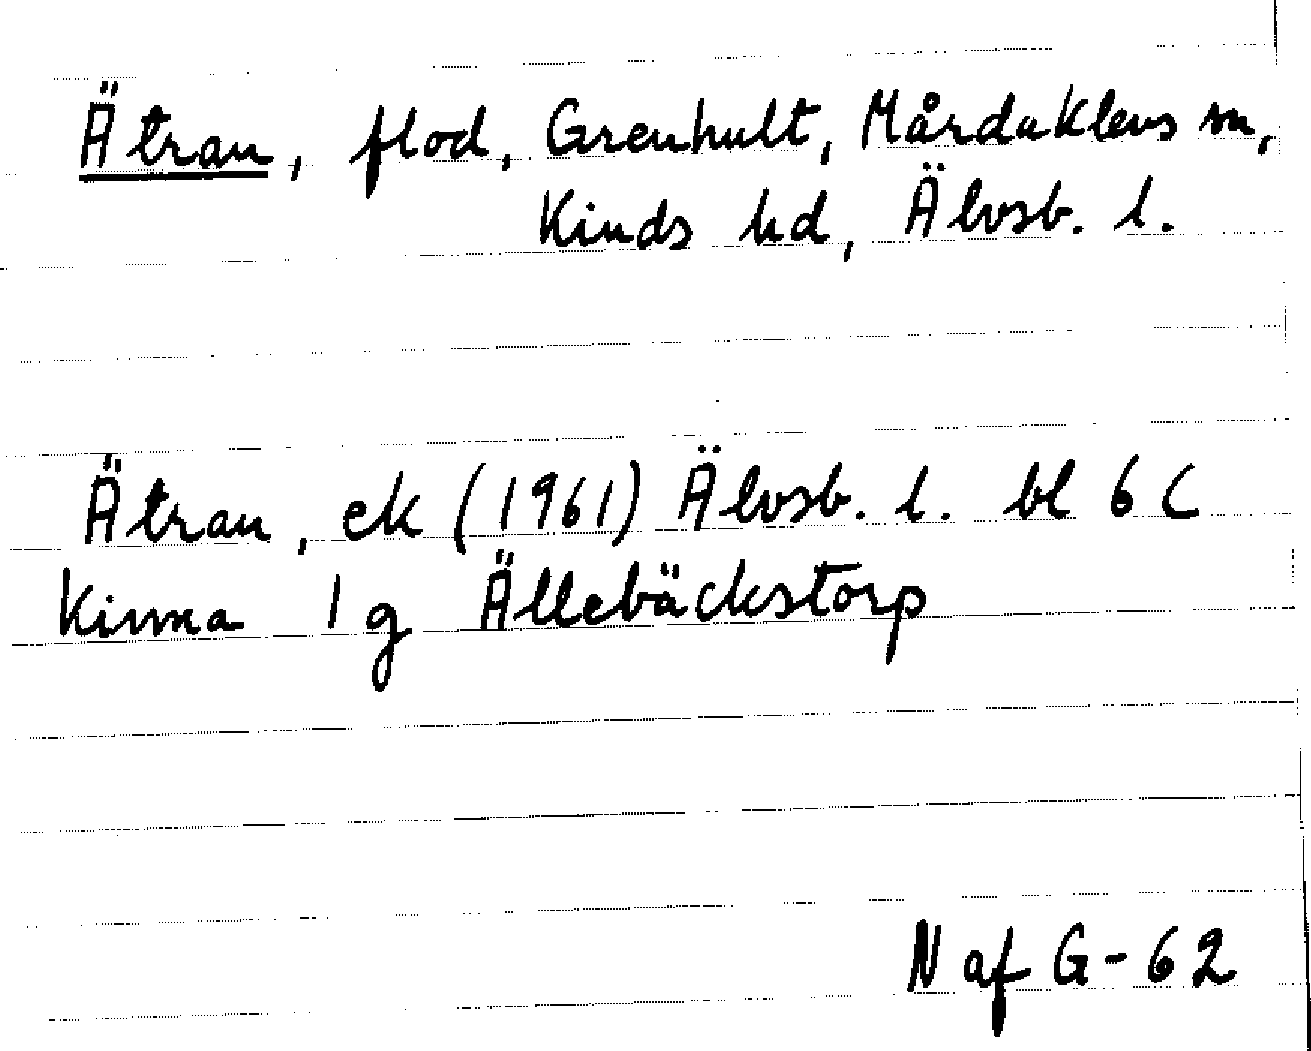 Ätran, flod, Grenhult, Mårdaklevs sn,
Kinds hd, Älvsb. l.
Ätran, ek (1961) Älvsb. l. bl 6 C
Kinna 1 g Ällebäckstorp
N af G-62